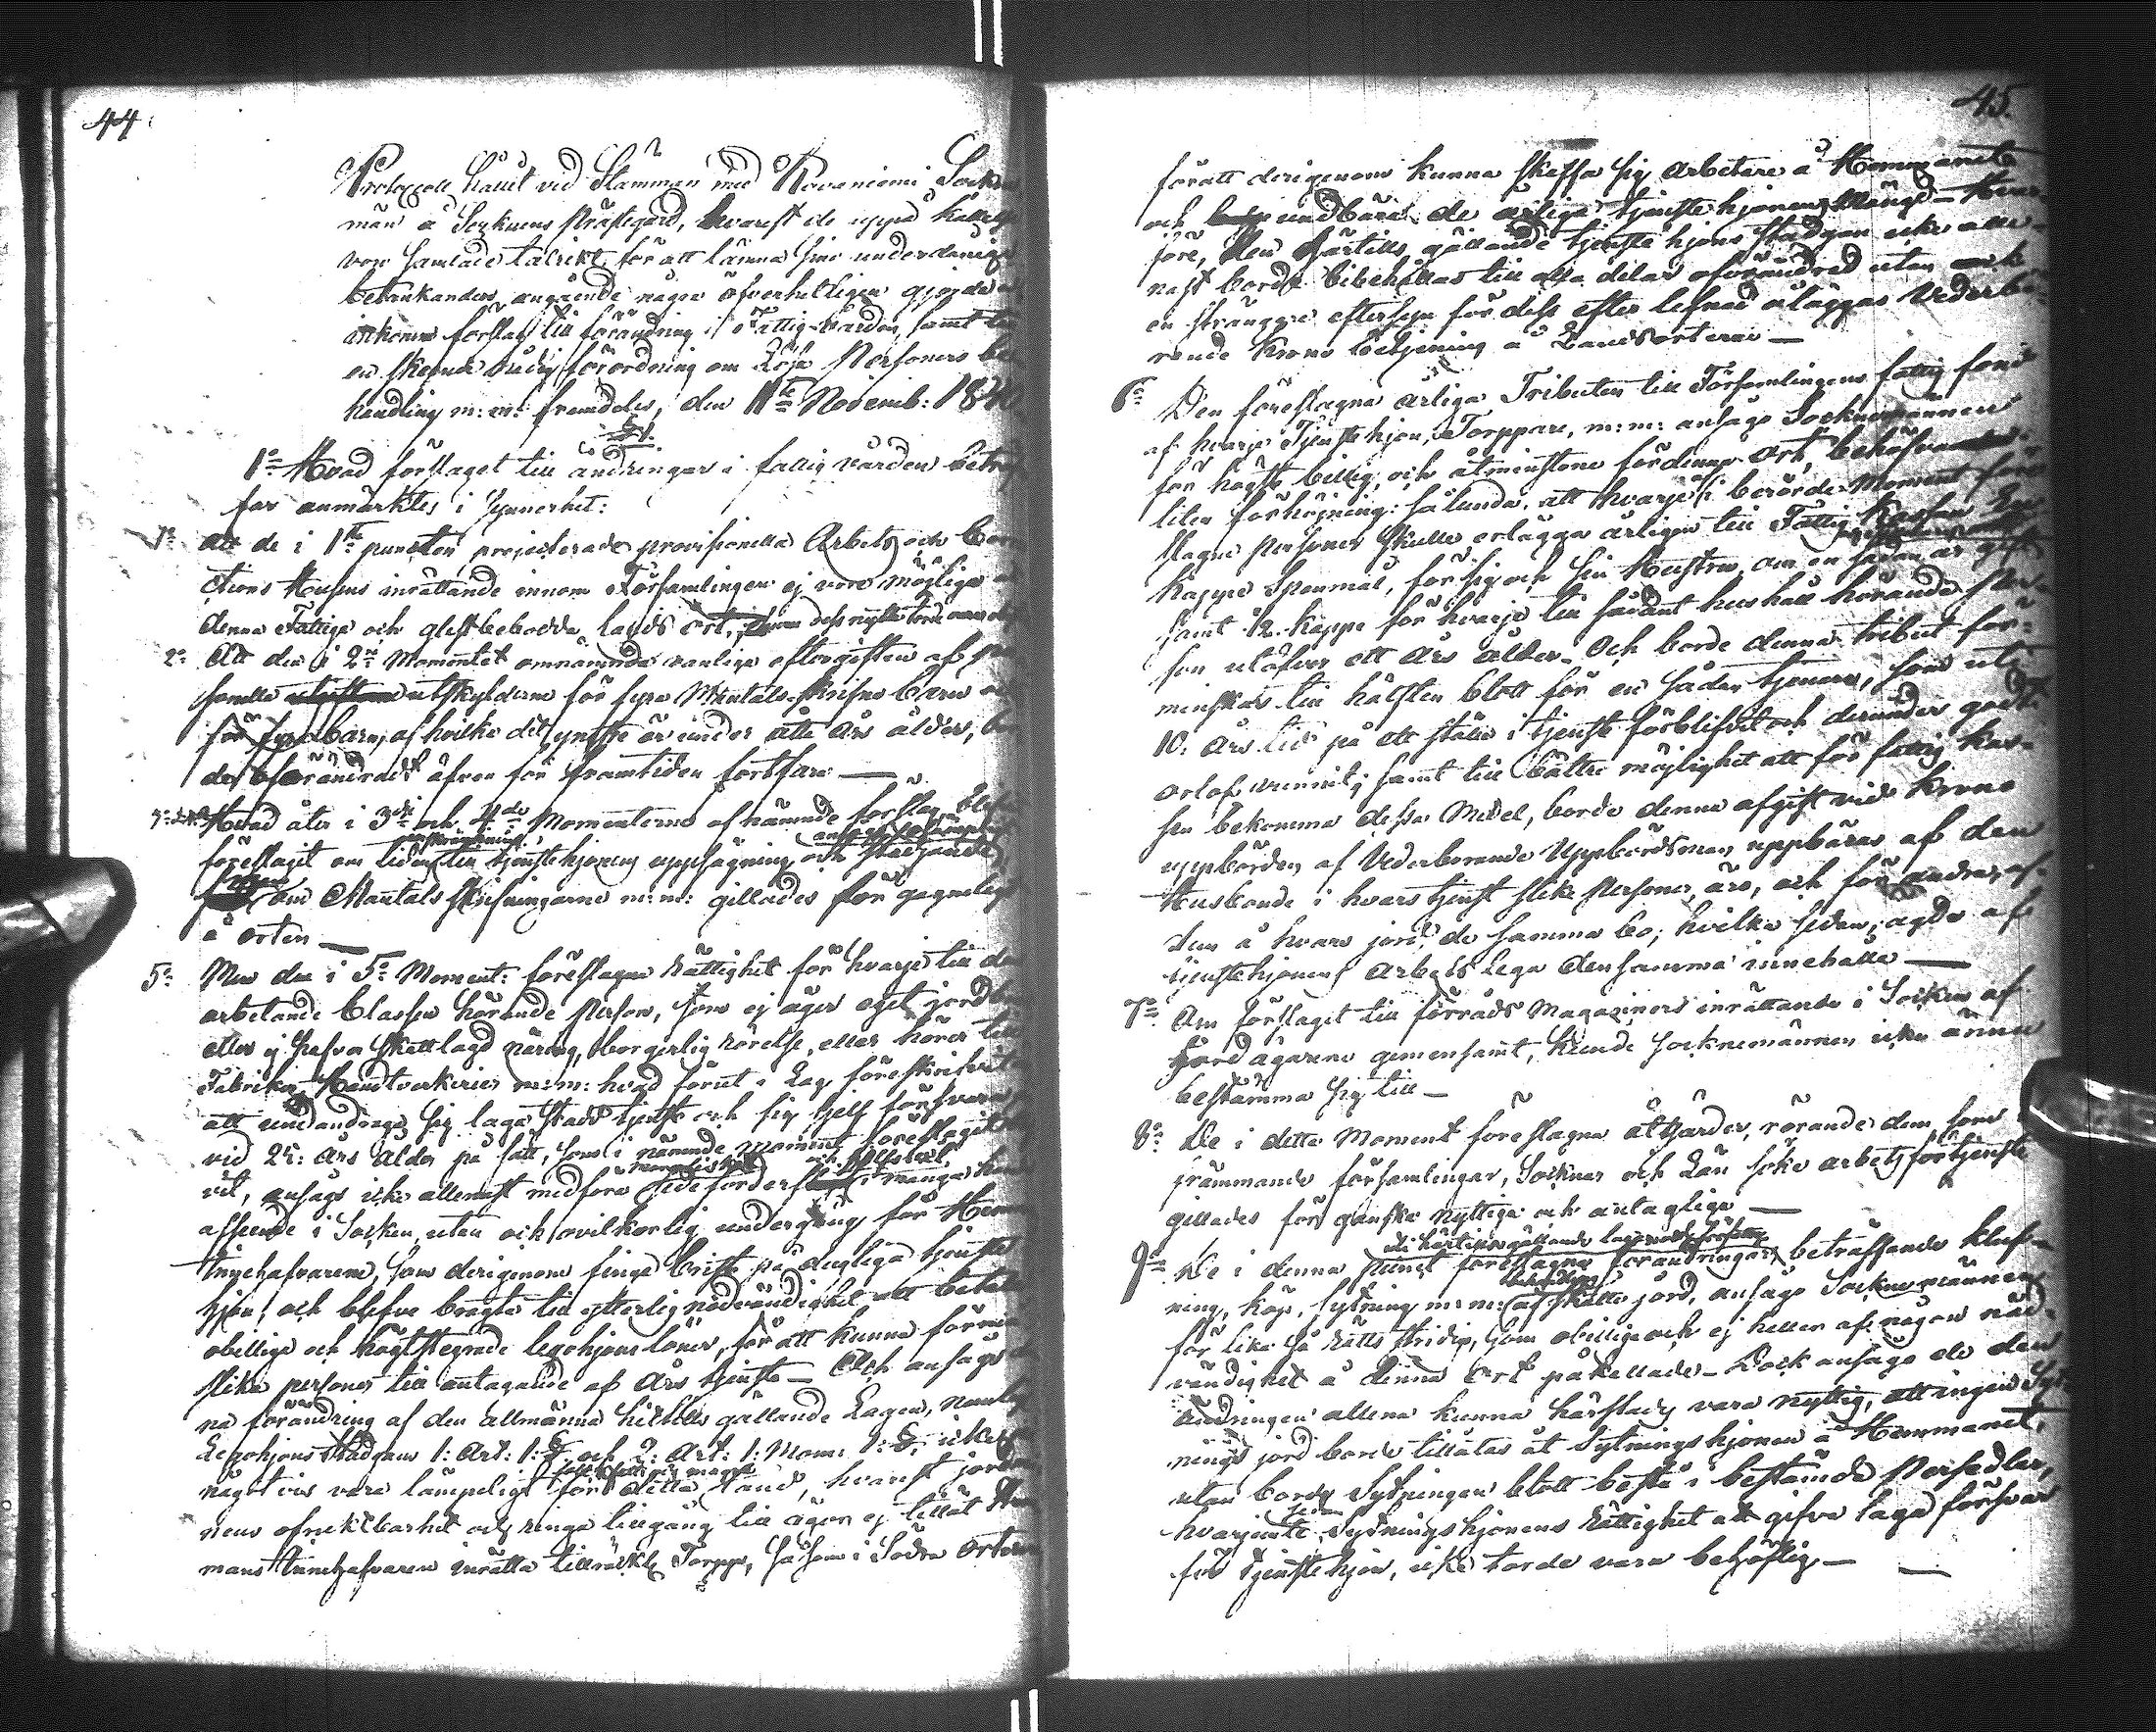 44.
Protocoll hållet vid Stämman med Rovaniemi Sockne
män å Soknens Prästegård, hvarest de uppå kallelse
voro samlade talrikt, för att lämna sine underdåniga
betänkanden angående någre öfverhetligen gjorde
inkomne förslag till förändring i Fattig-Vården, samt
en skeende nådig förordning om Lösa Personers be
handling m: m: framdeles, den 11te Novemb: 184
§ 1.
1o Hvad förslaget till ändringar i fattig vården beträf
far anmärktes i synnerhet:
1o Att de i 1ta puncten projecterade provisionella Arbets och Corr
ctions Husens inrättande innom Församlingen ej vore möjliga
denna Fattiga och glest bebodda Lands ort, dess nytta torde
2o Att den i 2n Momentet omnämnda vanliga eftergiften af
sonella utskylderne för fyra Mantals-skrifna barn
för fyra barn, af hvilka det yngsta är under åtta års ålder,
de oförändradt äfven för framtiden fortfara —
Hvad åter i 3die och 4de Momenterne af nämnde förslag blif
föreslagit om tiden till tjenstehjonens uppsägning och
om Mantals Skrifningarne m: m: gillades för gagneligt
å orten —
5o Men den i 5o Moment: föreslagna rättighet för hvarje till de
arbetande Classen hörande Person, som ej äger eget jord
eller ej hafva skattlagd näring, borgerlig rörelse, eller hörer till
Fabriker, Handtverkerier m: m: hvad förut i Lag föreskrifvet
att undandraga sig laga stads tjenst och sig sjelf försvara
vid 25: års ålder på sätt, som i nämnde moment föreslagit
vit, ansågs icke allenast medföra sedeförderf i många
afseende i Socken, utan och ovilkorlig undergång för Hem
Innehafvarena, som derigenom finge brist på dugliga tjenste
hjon, och blefve bragte till ytterlig nödvändighet att betala
obilliga och högt stegrade legohjons löner, för att kunna förmå
slika personer till antagande af års tjenste — Och ansågs
na förändring af den allmänna hittills gällande Lagen, nemlig
Legohjons Stadgans 1: Art: 1: § och 2: Art: 1: Mom: 1: §, icke
något vis vara lämpligt för detta land, hvarest jor
nens ofruktbarhet och ringa tillgång till ägor ej tillåt
mans Innehafvaren inrätta tillräckl: Torpp, såsom i Södra orterne
45.
för att derigenom kunna skaffa sig arbetare å Hemmanet
och undbära de årliga tjenste hjonens mängd — Hvar
före, den härtills gällande tjenste hjons stadgan icke alle
nast borde bibehållas till alla delar oförändrad utan
en strängare eftersyn för dess efterlefnad åläggas Vederbö
rande Krono betjening å Landsorterne —
6o Den föreslagna årliga Tributen till Församlingens fattig fond
af hvarje Tjenstehjon, Torppare, m: m: ansågo Socknemännen
för högst billig, och åtminstone för denna Ort, behöfva
liten förhöjning: sålunda, att hvarje i berörde Moment före
slagne Personer skulle erlägga årligen till Fattig Kassan En
Kappe Spanmål, för sig och sin Hustru, om en sådan är gift
samt 1/2 Kappe för hvarje till sådant hushåll hörande Per
son utöfver ett års ålder. Och borde denna tribut för:
minskas till hälften blott för en sådan tjenare, som uti
10: års tid på ett ställe i tjenste förblifvit och derunder godt
orlof vunnit; samt till bättre möjlighet att för fattig Kas-
san bekomma dessa Medel, borde denna afgift vid Krono
uppbörden af Vederbörande Uppbördsman uppbäras af den
Husbonde i hvars tjenst slike Personer äro, och för andra, af
dem å hvars jord de samma bo; hvilka sedan, ägde af
tjenstehjonens Arbets Lega densamma innehålla —
7o Om förslaget till förråds Magaziners inrättande i Socken af
Jord ägarene gemensamt, kunde socknemännen icke ännu
bestämma sig till —
8o De i detta Moment föreslagna åtgärder, rörande dem som
främmande församlingar, Socknar och Län söka arbetsförtjenst
gillades för ganska nyttiga och antagliga —
9o De i denna punct föreslagna förändringar beträffande kluf-
ning, köp, sytning m: m: af skatte jord, ansågo Socknemännen
för lika så rätts stridig, som obillige och ej heller af någon nöd-
vändighet å denna Ort påkallade — Dock ansågo de den
ändringen allena kunna härstädes vara nyttig, att ingen Syt
nings jord borde tillåtas åt Sytningshjonen å Hemmanet,
utan borde Sytningen blott bestå i bestämde Persedlar,
hvarjemte Sytningshjonens rättighet att gifva laga försvar
för tjenstehjon, icke torde vara behöflig —